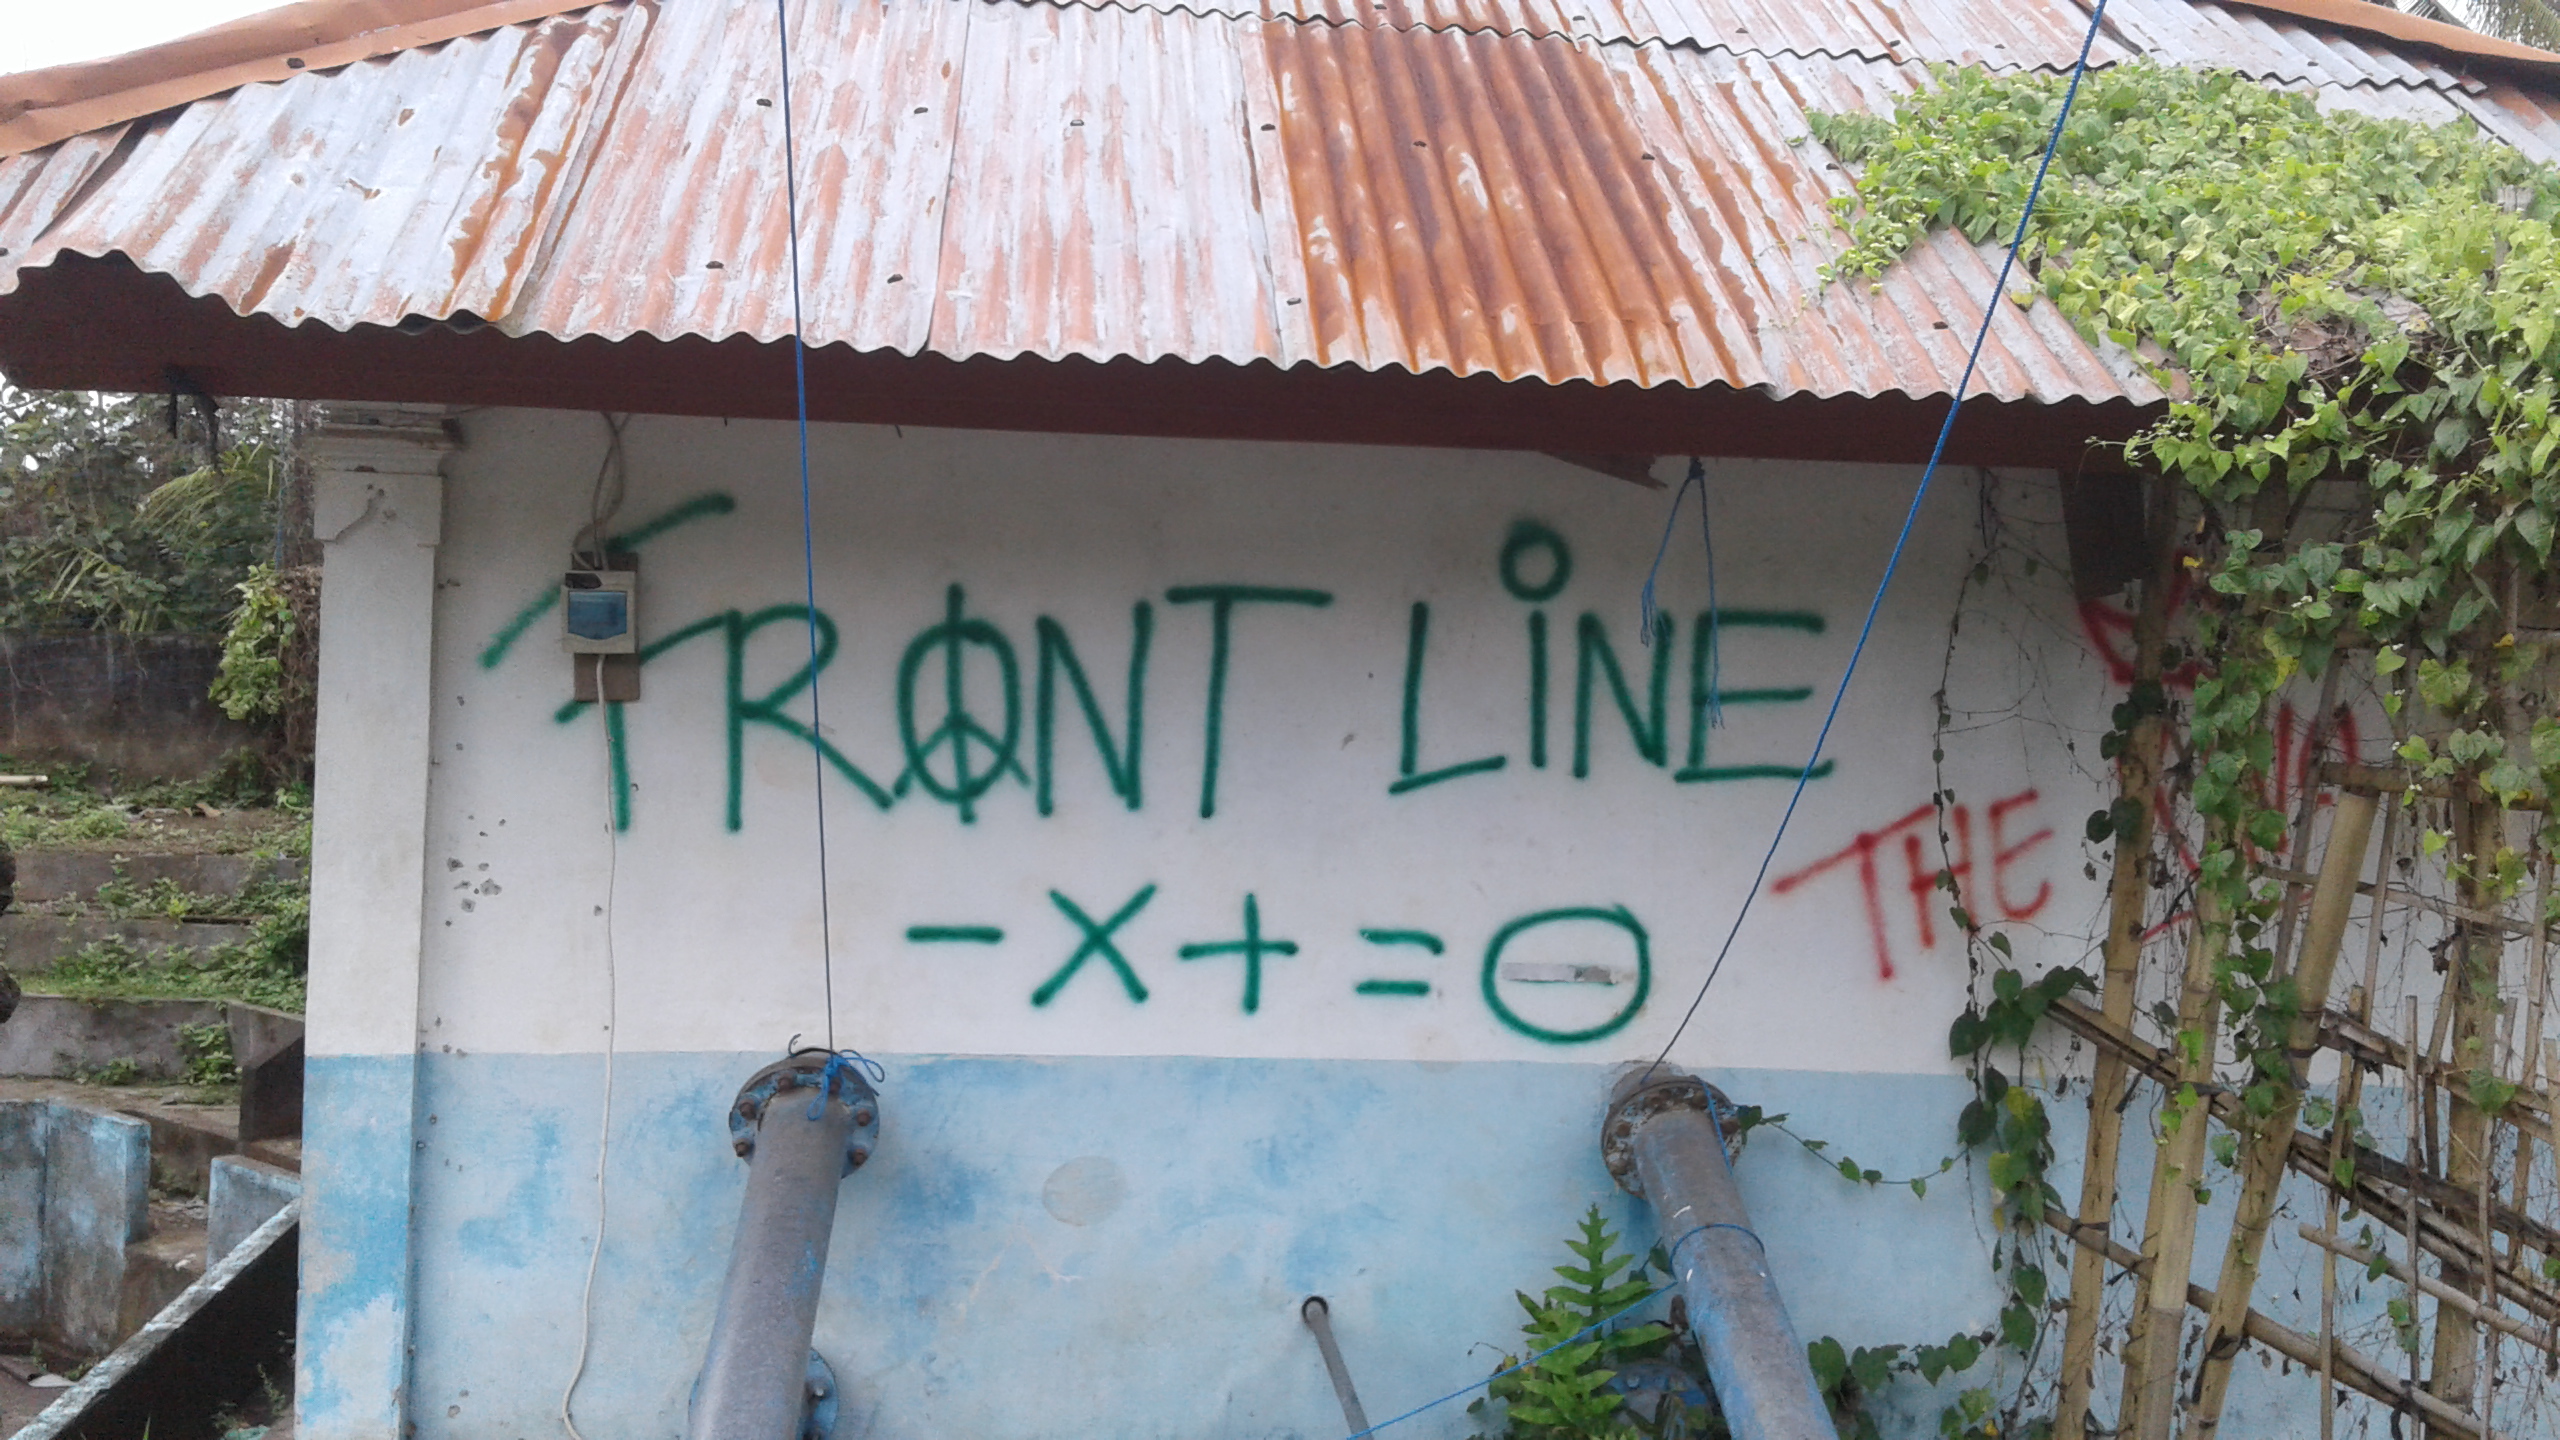 FRONT LiNE
- X + = ⊖
THE